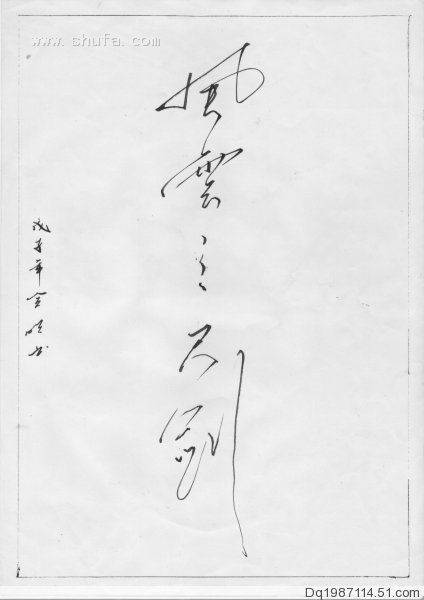 www.shufa.com
風雲之天劍
戊子年金书
Dq1987114.51.com